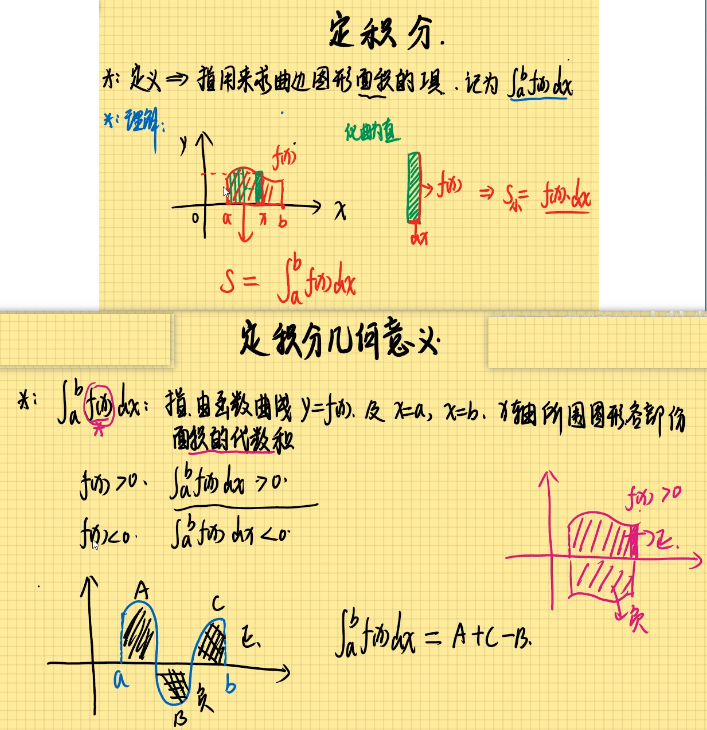 定积分.
*: 定义 ⇒ 指用来求曲边图形面积的工具. 记为 ∫ₐᵇ f(x) dx
*: 理解:
化曲为直
y
f(x)
0 a x b x
→ f(x) ⇒ S小 = f(x)·dx
dx
S = ∫ₐᵇ f(x) dx
定积分几何意义
*: ∫ₐᵇ f(x) dx: 指由函数曲线 y=f(x). 及 x=a, x=b. x轴所围图形各部份
*
面积的代数和
f(x)>0. ∫ₐᵇ f(x) dx >0.
f(x)<0. ∫ₐᵇ f(x) dx <0.
f(x) >0
→正.
负
A
C
正.
a b
B 负
∫ₐᵇ f(x) dx = A+C-B.